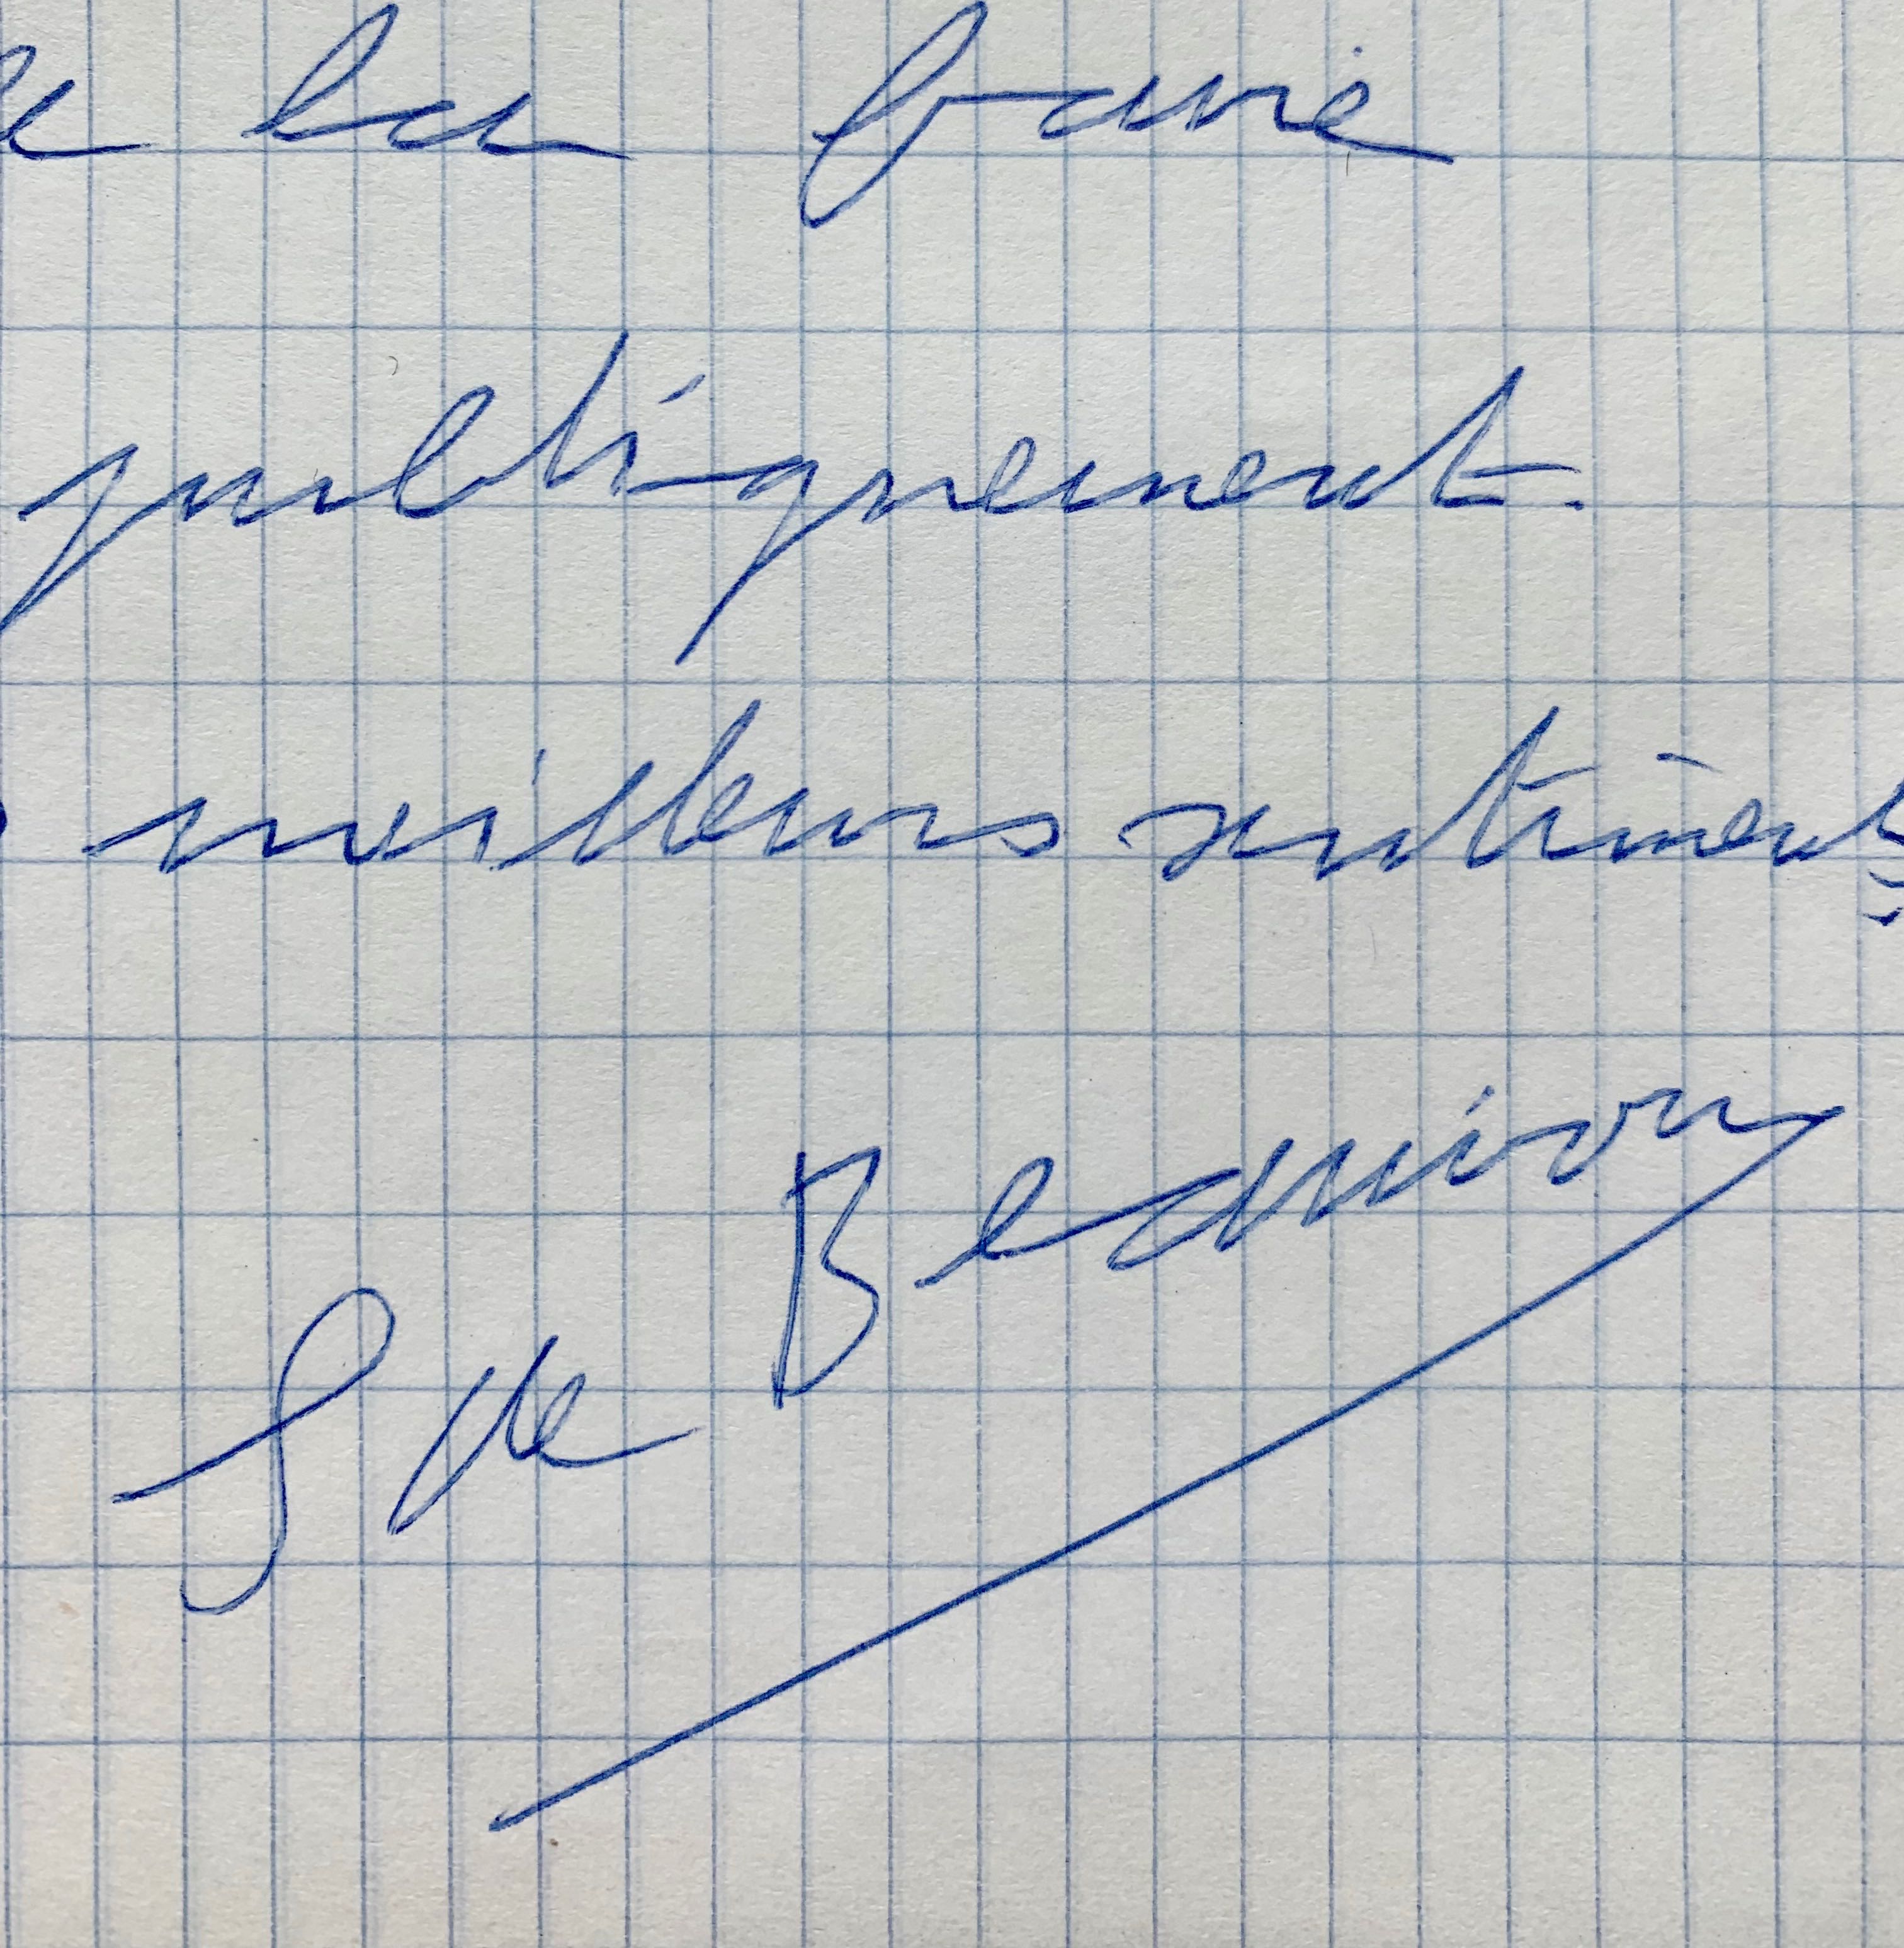 la faire
publiquement.
meilleurs sentiments
S de Beauvoir